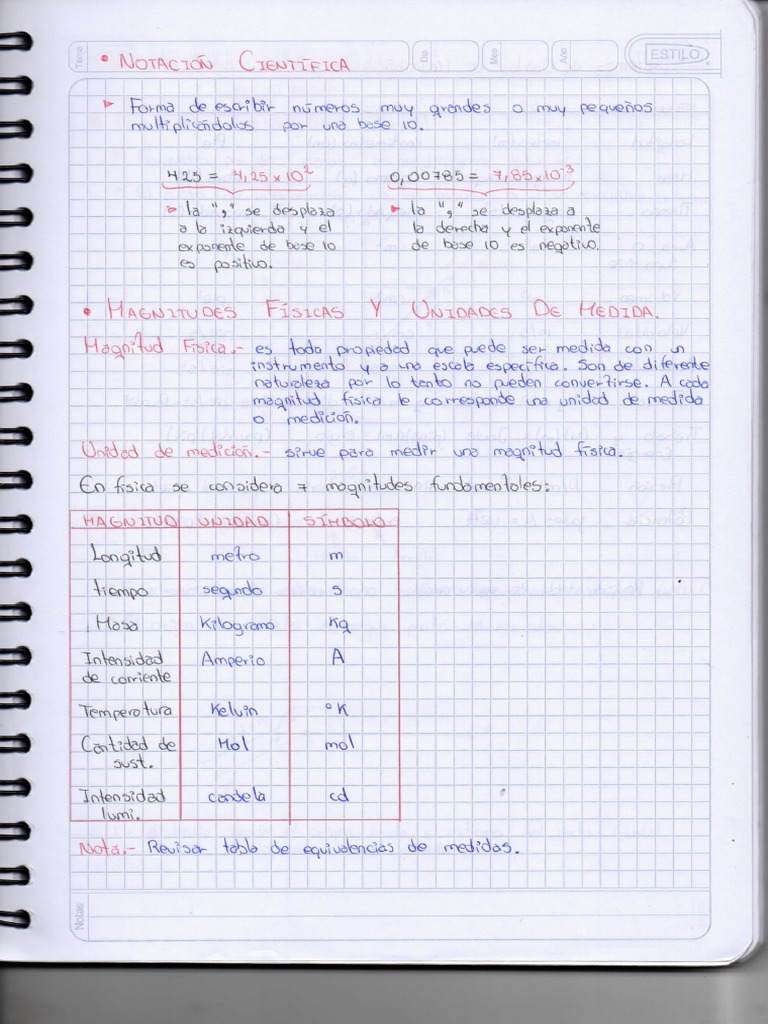 Tema
• NOTACIÓN CIENTÍFICA
Día
Mes
Año
ESTILO
Forma de escribir números muy grandes o muy pequeños
multiplicándolos por una base 10.
425 = 4,25 x 10²
0,00785 = 7,85 x 10⁻³
la "," se desplaza
a la izquierda y el
exponente de base 10
es positivo.
la "," se desplaza a
la derecha y el exponente
de base 10 es negativo.
• MAGNITUDES FÍSICAS Y UNIDADES DE MEDIDA.
Magnitud Física.- es toda propiedad que puede ser medida con un
instrumento y a una escala específica. Son de diferente
naturaleza por lo tanto no pueden convertirse. A cada
magnitud física le corresponde una unidad de medida
o medición.
Unidad de medición.- sirve para medir una magnitud física.
En física se considera 7 magnitudes fundamentales:
MAGNITUD UNIDAD SÍMBOLO
Longitud metro m
tiempo segundo s
Masa Kilogramo Kg
Intensidad
de corriente Amperio A
Temperatura Kelvin °K
Cantidad de
sust. Mol mol
Intensidad
lumi. candela cd
Nota.- Revisar tabla de equivalencias de medidas.
Notas